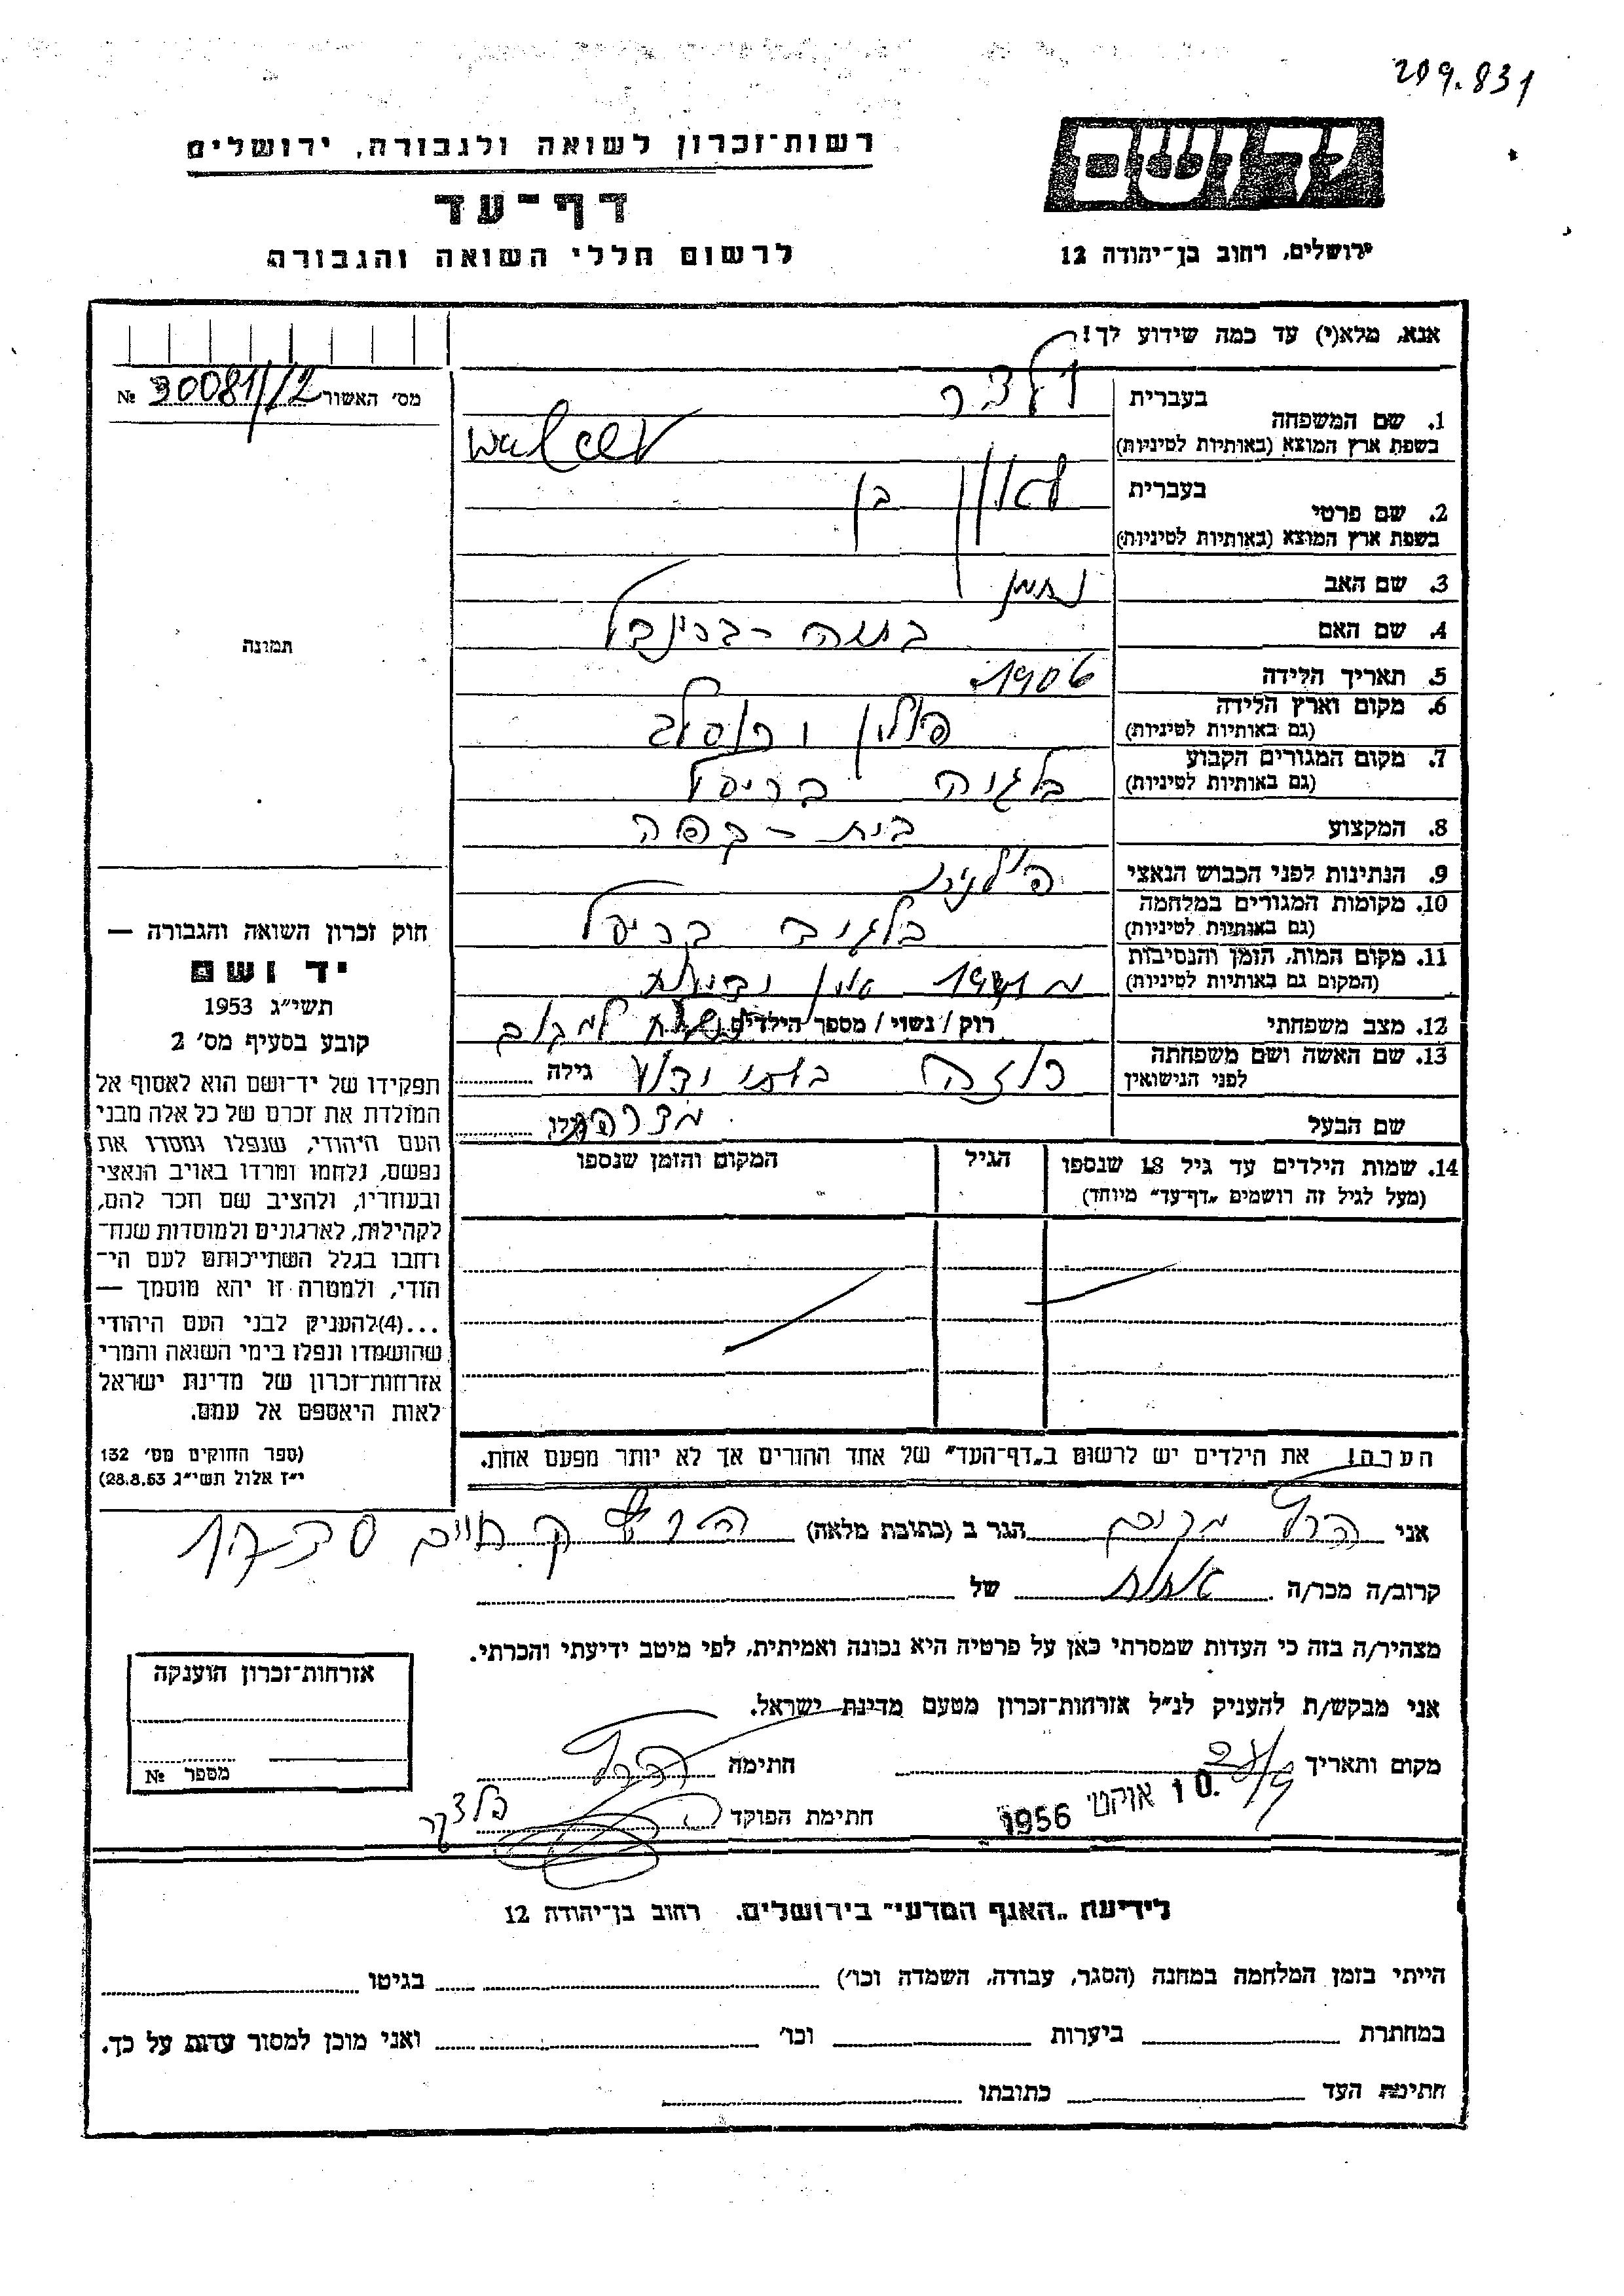 209.831
יד ושם
רשות־זכרון לשואה ולגבורה, ירושלים
דף־עד
לרשום חללי השואה והגבורה
ירושלים, רחוב בן־יהודה 12
אנא, מלא(י) עד כמה שידוע לך!
מס׳ האשור 30081/12 №
1. שם המשפחה
בעברית ולצר
בשפת ארץ המוצא (באותיות לטיניות) Walcer
2. שם פרטי
בעברית בן
בשפת ארץ המוצא (באותיות לטיניות)
3. שם האב נחמן
4. שם האם
5. תאריך הלידה 1906
6. מקום וארץ הלידה פולין
(גם באותיות לטיניות)
7. מקום המגורים הקבוע בלגיה בריסל
(גם באותיות לטיניות)
8. המקצוע בית-קפה
9. הנתינות לפני הכבוש הנאצי
10. מקומות המגורים במלחמה בריסל
(גם באותיות לטיניות)
11. מקום המות, הזמן והנסיבות
(המקום גם באותיות לטיניות)
12. מצב משפחתי רוק / נשוי / מספר הילדים
13. שם האשה ושם משפחתה
לפני הנישואין רוזה גילה
שם הבעל
14. שמות הילדים עד גיל 18 שנספו
(מעל לגיל זה רושמים „דף־עד״ מיוחד)
הגיל
המקום והזמן שנספו
הערה! את הילדים יש לרשום ב„דף־העד״ של אחד ההורים אך לא יותר מפעם אחת.
תמונה
חוק זכרון השואה והגבורה —
יד ושם
תשי״ג 1953
קובע בסעיף מס׳ 2
תפקידו של יד־ושם הוא לאסוף אל
המולדת את זכרם של כל אלה מבני
העם היהודי, שנפלו ומסרו את
נפשם, נלחמו ומרדו באויב הנאצי
ובעוזריו, ולהציב שם וזכר להם,
לקהילות, לארגונים ולמוסדות שנח־
רבו בגלל השתייכותם לעם הי־
הודי, ולמטרה זו יהא מוסמך —
...(4)להעניק לבני העם היהודי
שהושמדו ונפלו בימי השואה והמרי
אזרחות־זכרון של מדינת ישראל
לאות היאספם אל עמם.
(ספר החוקים מס׳ 132
י״ז אלול תשי״ג 28.8.53)
אני הרל מרים הגר ב (כתובת מלאה) ק חיים
קרוב/ה מכר/ה אחות של
מצהיר/ה בזה כי העדות שמסרתי כאן על פרטיה היא נכונה ואמיתית, לפי מיטב ידיעתי והכרתי.
אני מבקש/ת להעניק לנ״ל אזרחות־זכרון מטעם מדינת ישראל.
מקום ותאריך חתימה הרל
10 אוקט׳ 1956
חתימת הפוקד
אזרחות־זכרון הוענקה
מספר №
לידיעת „האגף המדעי״ בירושלים. רחוב בן־יהודה 12
הייתי בזמן המלחמה במחנה (הסגר, עבודה, השמדה וכו׳) בגיטו
במחתרת ביערות וכו׳ ואני מוכן למסור עדות על כך.
חתימת העד כתובתו